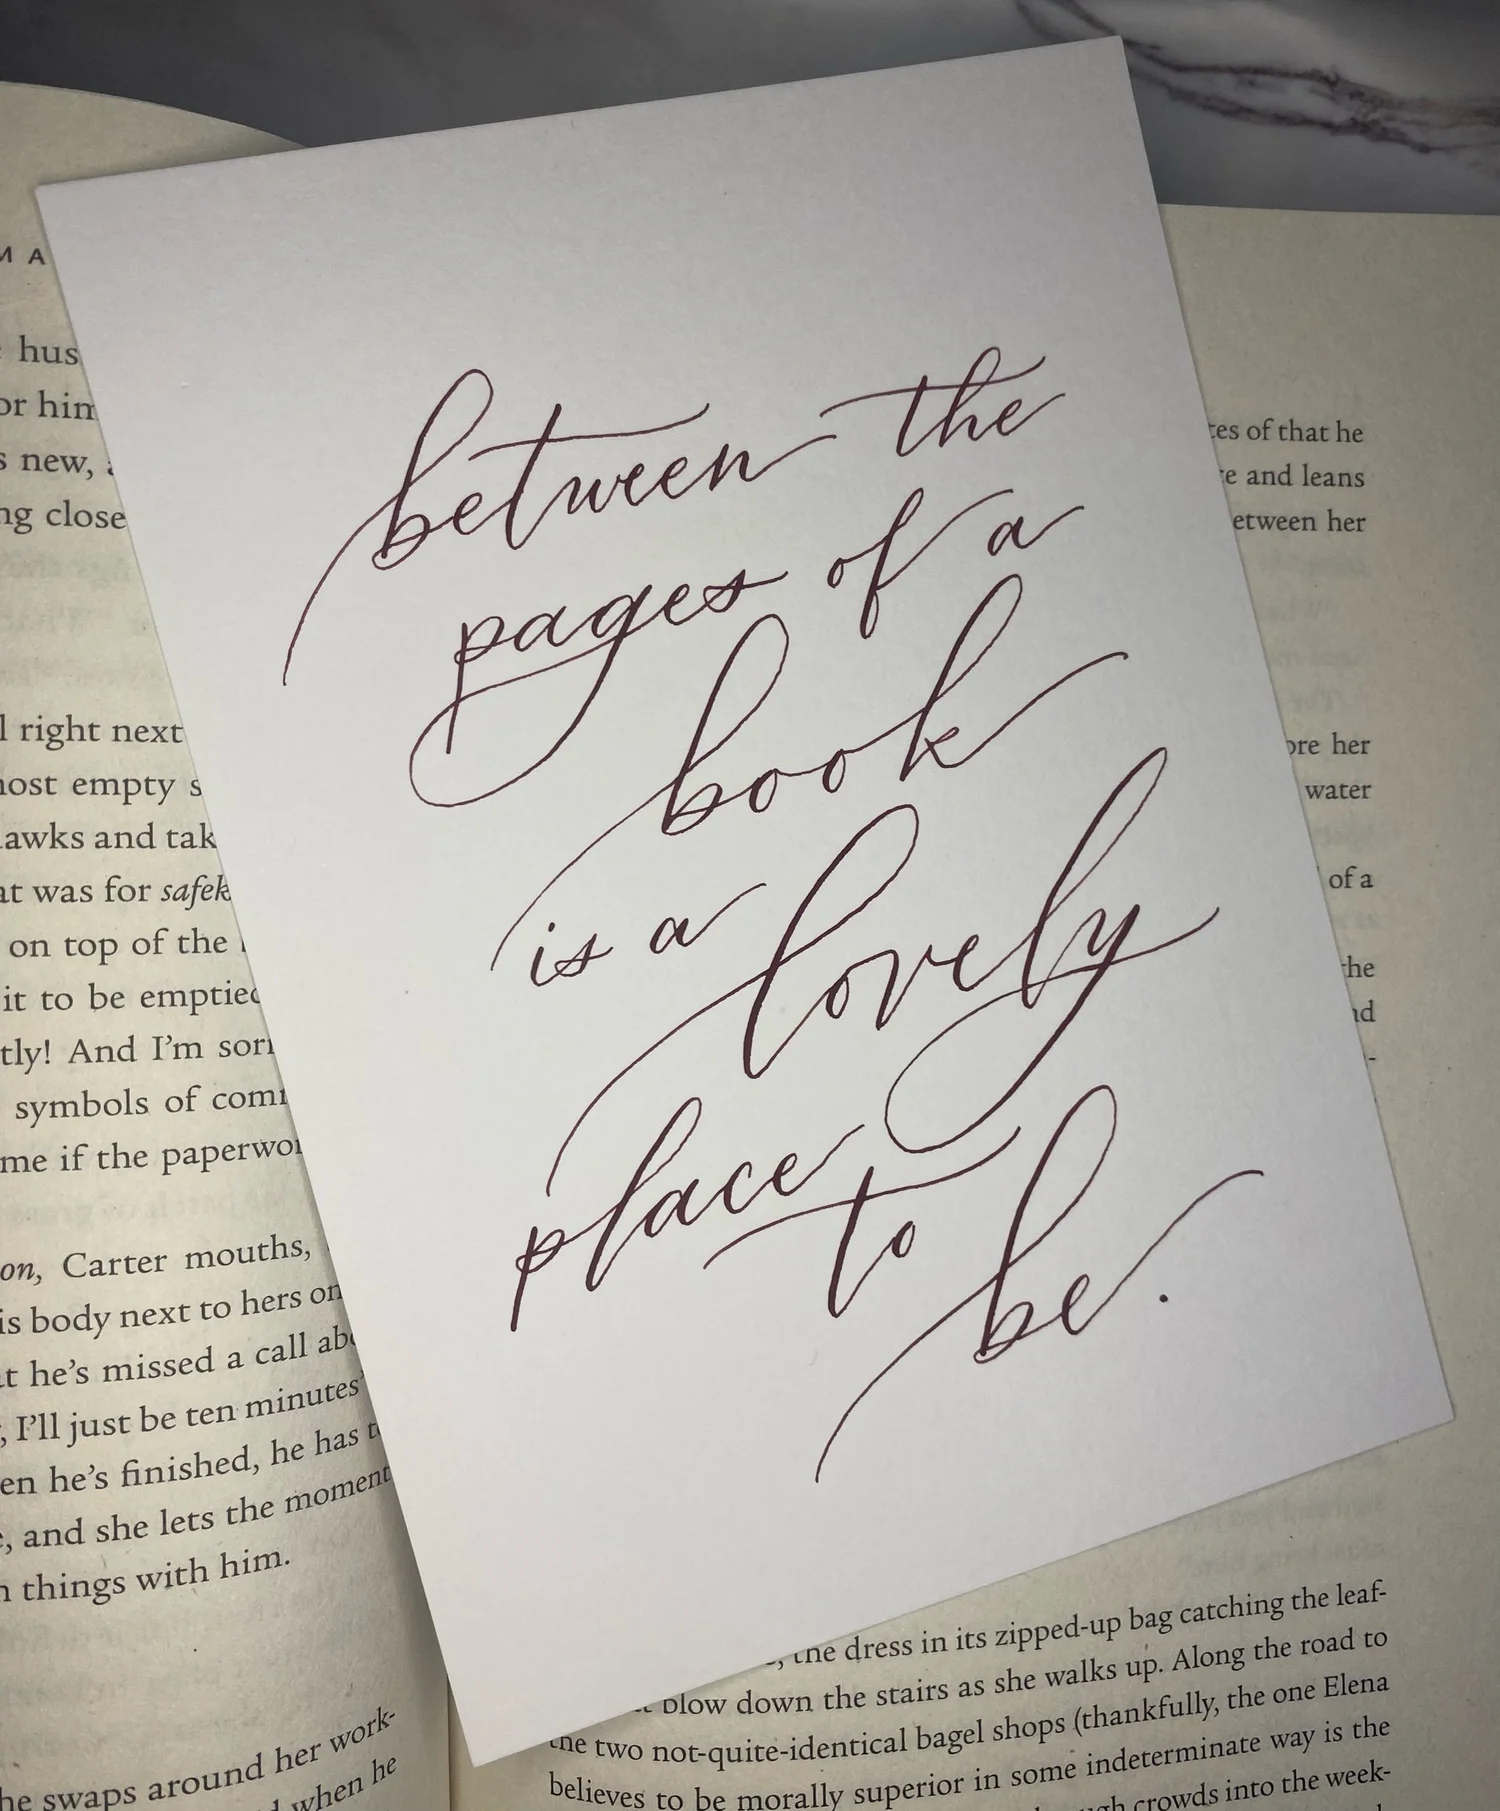 between the
pages of a
book
is a lovely
place to
be.
M A
hus
or him
s new,
ng close
l right next
most empty s
awks and tak
at was for safek
on top of the
it to be emptied
tly! And I'm sorr
symbols of com
me if the paperwor
on, Carter mouths,
is body next to hers on
at he's missed a call abo
, I'll just be ten minutes'
en he's finished, he has t
e, and she lets the moment
n things with him.
he swaps around her work-
when he
tes of that he
e and leans
etween her
ore her
water
of a
the
nd
-
, the dress in its zipped-up bag catching the leaf-
blow down the stairs as she walks up. Along the road to
the two not-quite-identical bagel shops (thankfully, the one Elena
believes to be morally superior in some indeterminate way is the
gh crowds into the week-